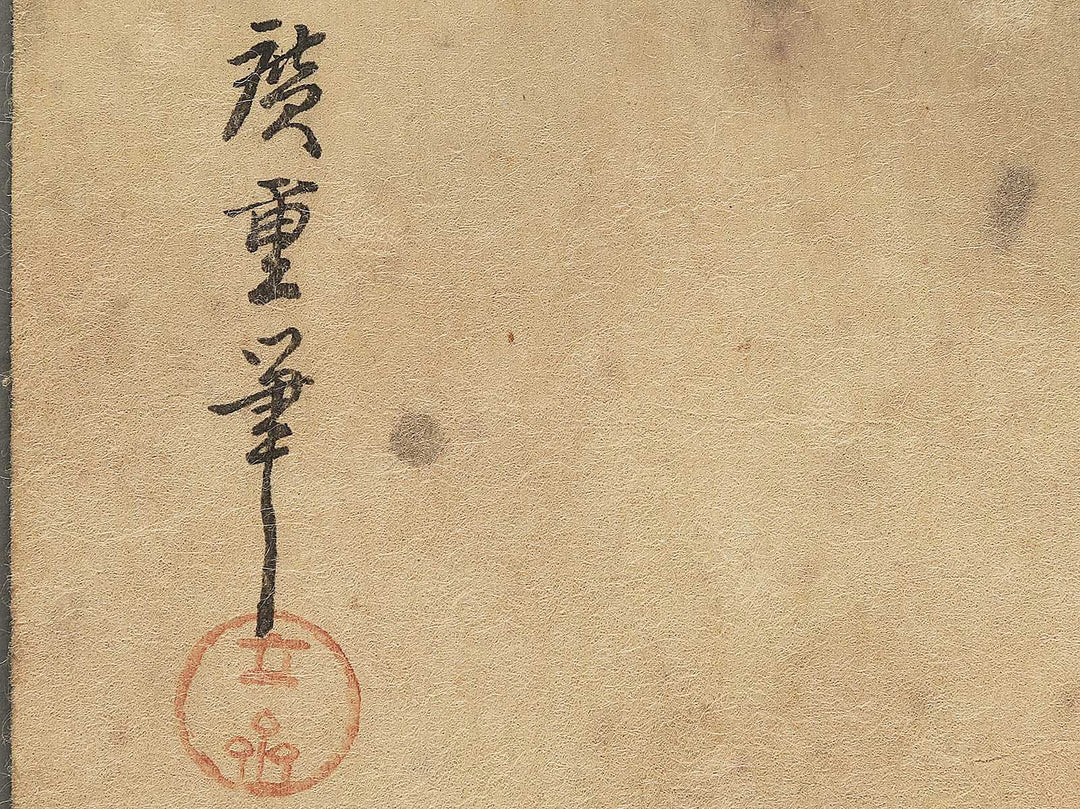 廣重筆
立齋